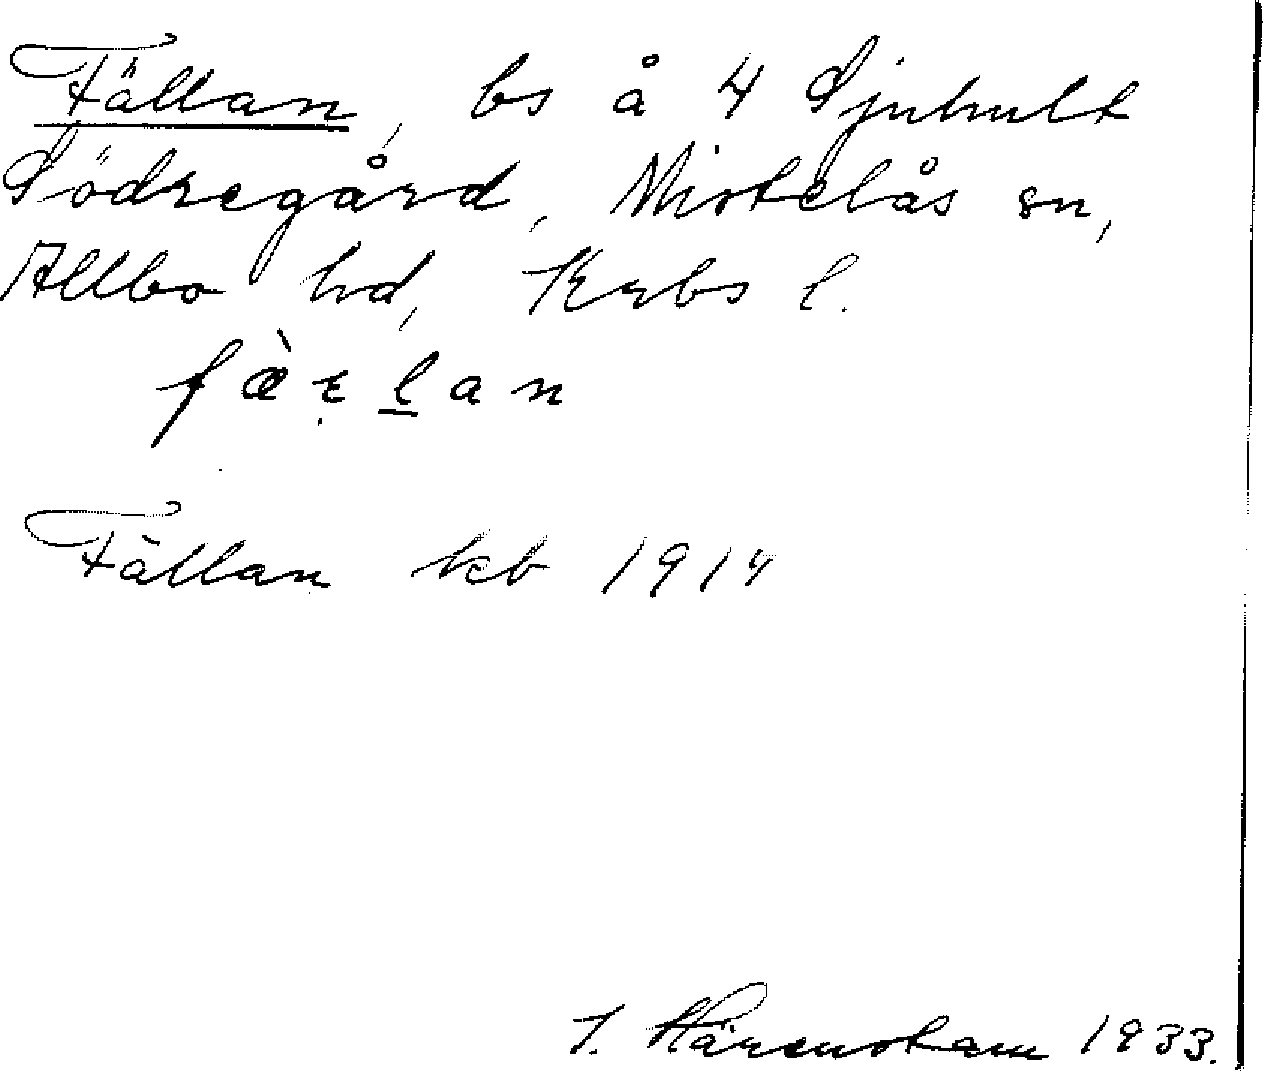 Fällan, bs å 4 Sjuhult
Södregård, Mistelås sn,
Allbo hd, Krbs l.
Fällan kb 1914
J. Härenstam 1933.